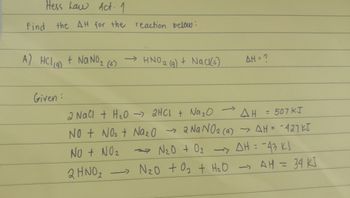 Hess Law Act. 1
Find the ΔH for the reaction below:
A) HCl(g) + NaNO₂ (s) → HNO₂ (g) + NaCl(s) ΔH = ?
Given:
2 NaCl + H₂O → 2HCl + Na₂O → ΔH = 507 KJ
NO + NO₂ + Na₂O → 2 NaNO₂ (s) → ΔH = -427 KJ
NO + NO₂ → N₂O + O₂ → ΔH = -43 KJ
2 HNO₂ → N₂O + O₂ + H₂O → ΔH = 34 KJ